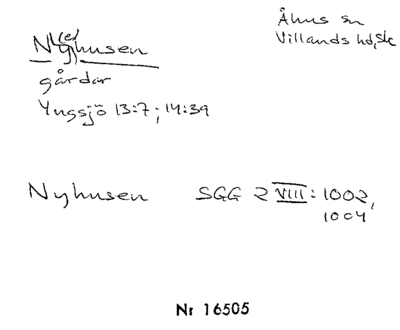 Nyhusen
(e)
Åhus sn
Villands hd, Sk
gårdar
Yngsjö 13:7; 14:39
Nyhusen SGG 2 VIII: 1002,
1004
Nr 16505